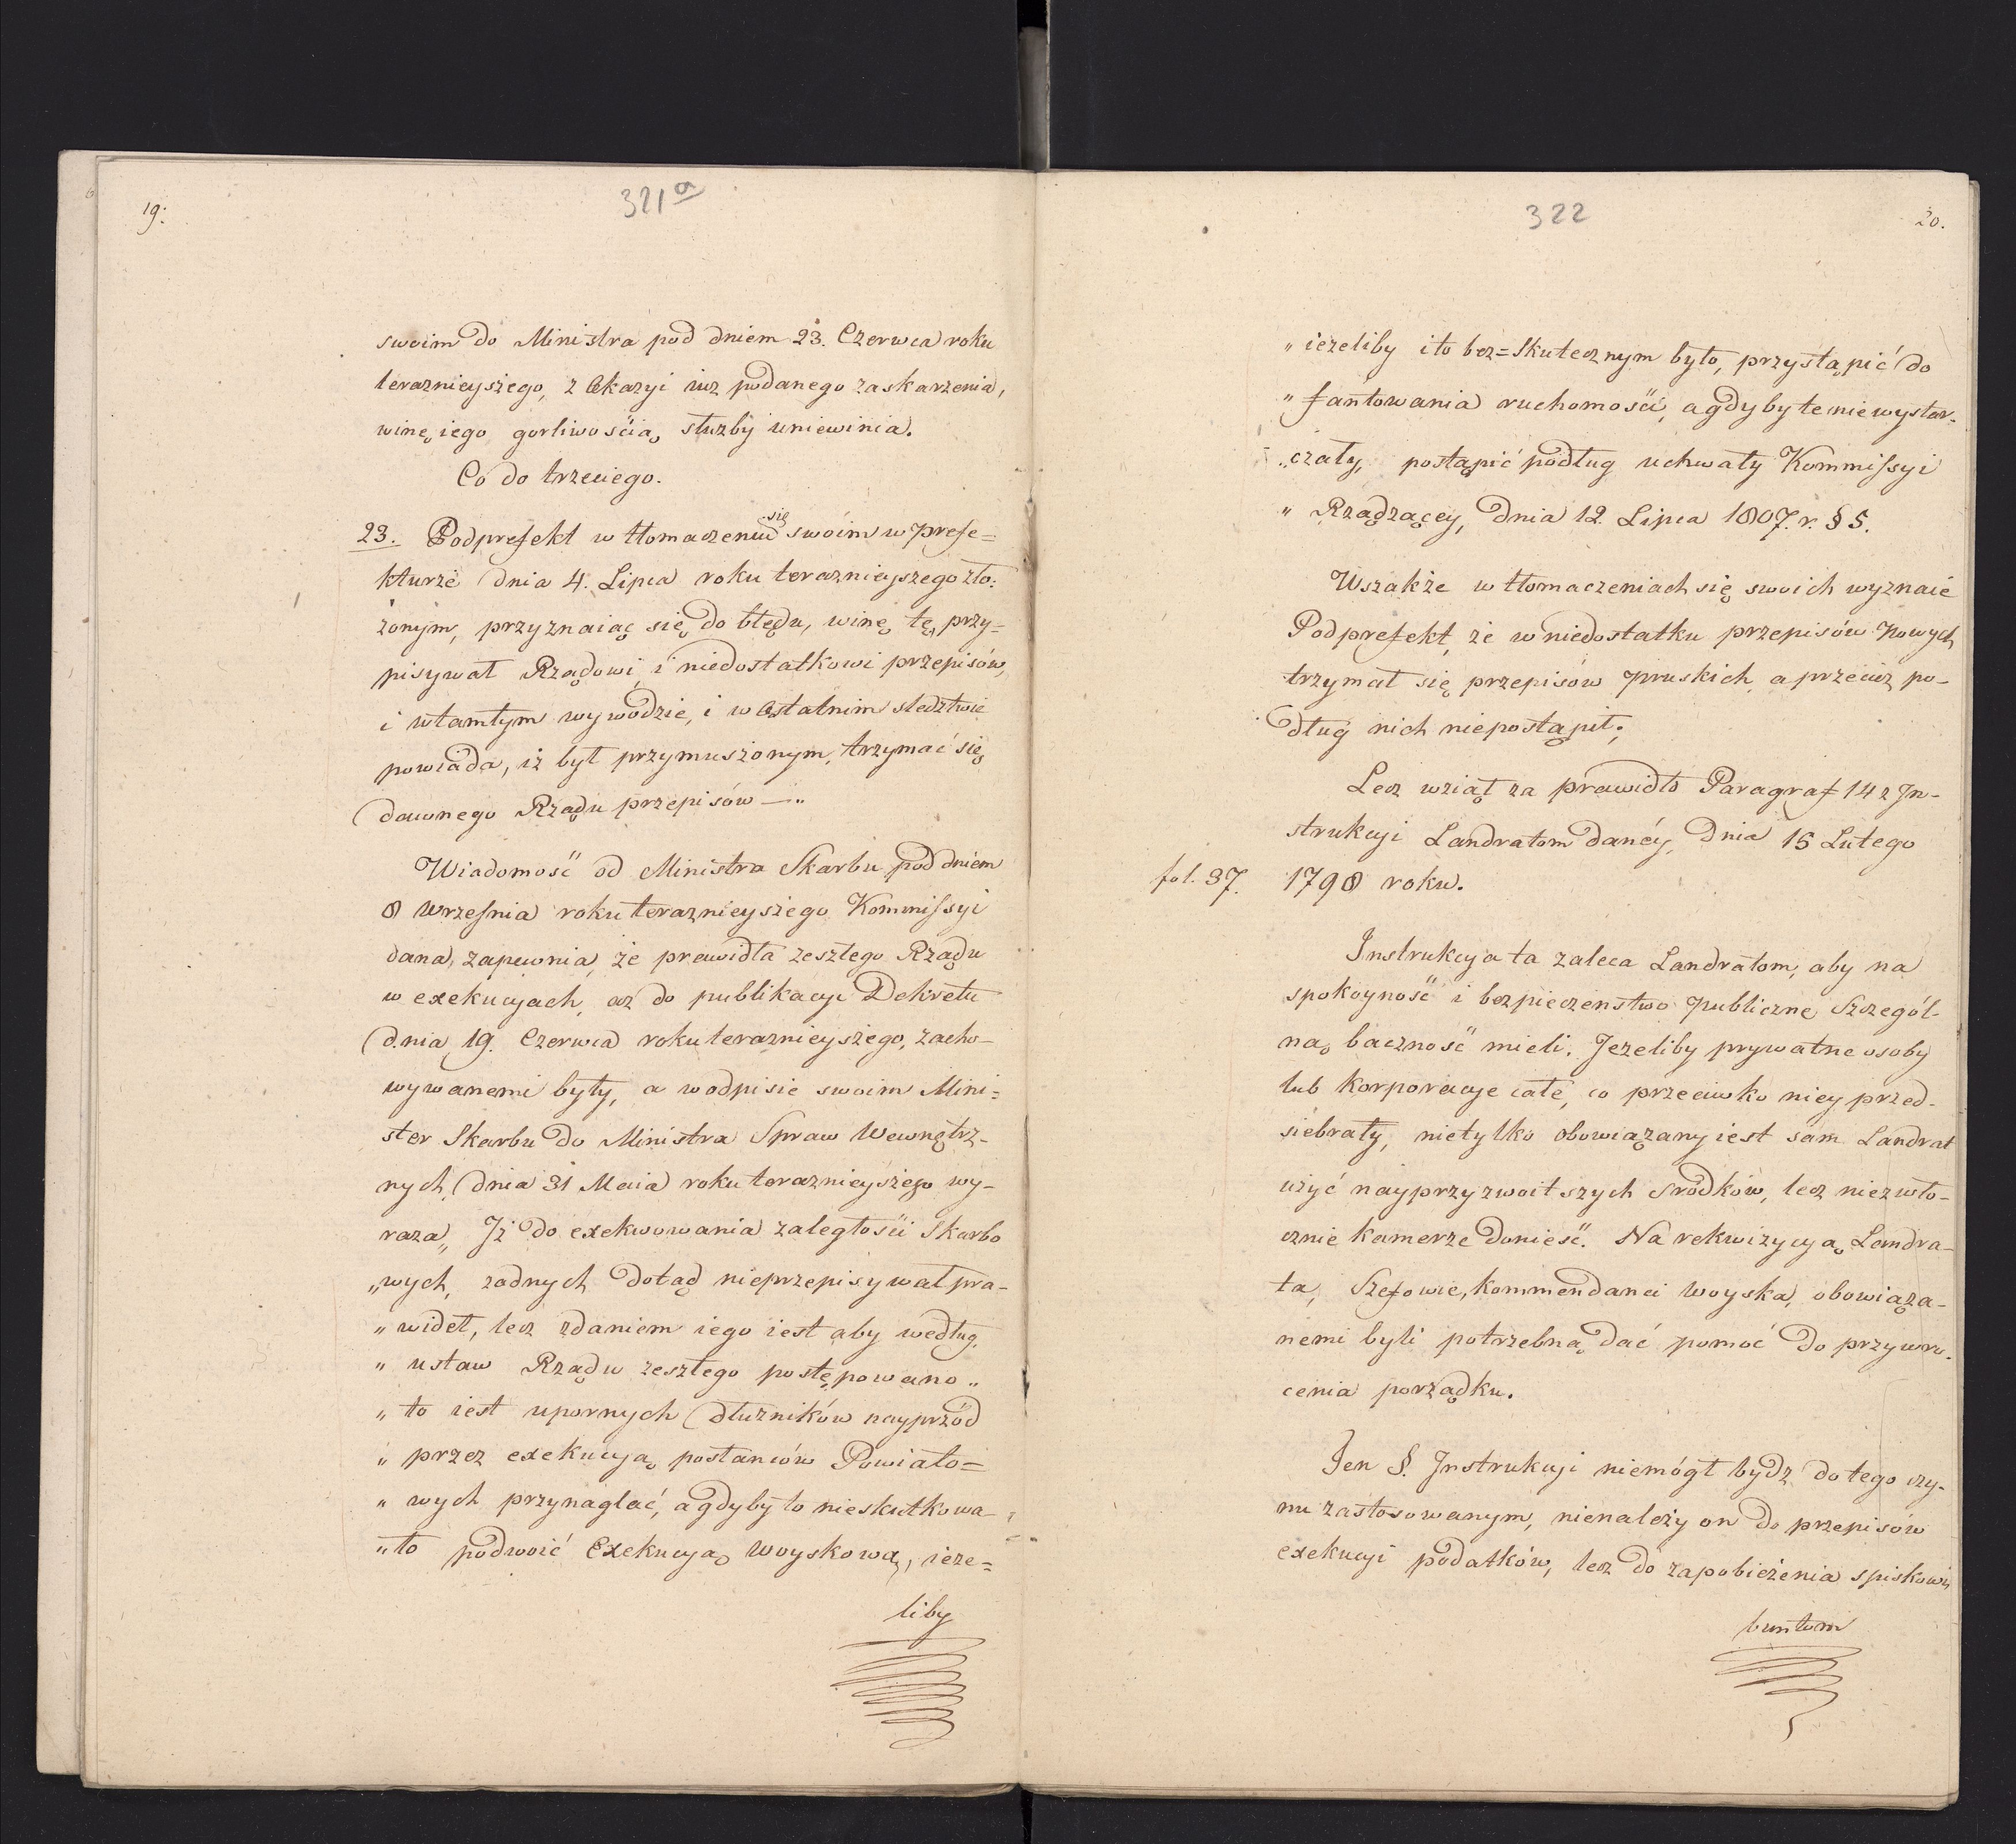 19.
321a
swoim do Ministra pod dniem 23. Czerwca roku
teraznieyszego, z Okazyi iuz podanego zaskarzenia,
winę iego gorliwością służby uniewinia.
Co do trzeciego.
23. Podprefekt w tłomaczeniu się swoim w Prefe=
kturze dnia 4. Lipca roku teraznieyszego zło:
żonym, przyznaiąc się do błędu, winę tę przy=
pisywał Rządowi, i niedostatkowi przepisów,
i w tamtym wywodzie, i w Ostatnim sledztwie
powiada, iż był przymuszonym, trzymać się
dawnego Rządu przepisów —"
Wiadomość od Ministra Skarbu pod dniem
8 Września roku teraznieyszego Kommissyi
dana, zapewnia, że prawidła zeszłego Rządu
w exekucyach, aż do publikacyi Dekretu
dnia 19. Czerwca roku teraznieyszego, zacho-
wywanemi były, a w odpisie swoim Mini=
ster Skarbu do Ministra Spraw Wewnętrz-
nych, dnia 31 Maia roku teraznieyszego wy-
raza „ Iż do exekwowania zaległości Skarbo
„wych, żadnych dotąd nieprzepisywał pra-
" wideł, lecz zdaniem iego iest aby według
" ustaw Rządu zeszłego postępowano „
" to iest upornych dłużników nayprzód
" przez exekucyą posłańców Powiato=
" wych przynaglać, a gdyby to nieskutkowa-
" ło podwoić Exekucyą Woyskową, ieże=
liby
322
20.
" ieżeliby i to bez=Skutecznym było, przystąpić do
" fantowania ruchomości, a gdyby te niewystar-
" czały, postąpić podług uchwały Kommissyi
" Rządzącey, dnia 12 Lipca 1807. r. § 5.
Wszakże w tłomaczeniach się swoich wyznaie
Podprefekt, że w niedostatku przepisów Nowych
trzymał się przepisów Pruskich, a przecież po-
dług nich niepostąpił;
Lecz wziął za prawidło Paragraf 14 z In-
strukcyi Landratom danéy, Dnia 15 Lutego
fol. 37. 1798 roku.
Instrukcya ta zaleca Landratom, aby na
spokoyność i bezpieczeństwo Publiczne Szczegól-
ną baczność mieli. Jeżeliby prywatne osoby
lub korporacye całe, co przeciwko niey przed-
siebrały, nietylko obowiązany iest sam Landrat
użyć nayprzyzwoitszych srodków, lecz niezwło-
cznie kamerze donieść. Na rekwizycyą Landra-
ta, Szefowie, kommendanci Woyska, obowiąza-
nemi byli potrzebną dać pomoc do przywró-
cenia porządku.
Ten §. Instrukcyi niemógł bydź do tego czy-
nu zastosowanym, nienależy on do przepisów
exekucyi podatków, lecz do zapobieżenia spiskowi
buntom